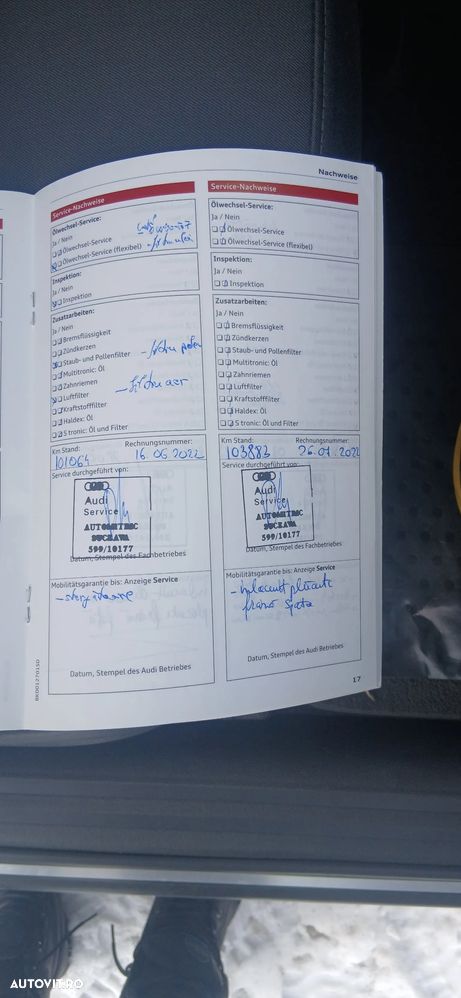 Nachweise
Service-Nachweise
Ölwechsel-Service:
Ja / Nein
Ölwechsel-Service
Ölwechsel-Service (flexibel)
Inspektion:
Ja / Nein
Inspektion
Zusatzarbeiten:
Ja / Nein
Bremsflüssigkeit
Zündkerzen
Staub- und Pollenfilter - filtru polen
Multitronic: Öl
Zahnriemen
Luftfilter - filtru aer
Kraftstofffilter
Haldex: Öl
S tronic: Öl und Filter
Km Stand: Rechnungsnummer:
101064 16.06.2022
Service durchgeführt von:
Audi
Service
AUTOMITRIC
SUCEAVA
599/10177
Datum, Stempel des Fachbetriebes
Mobilitätsgarantie bis: Anzeige Service
Datum, Stempel des Audi Betriebes
Service-Nachweise
Ölwechsel-Service:
Ja / Nein
Ölwechsel-Service
Ölwechsel-Service (flexibel)
Inspektion:
Ja / Nein
Inspektion
Zusatzarbeiten:
Ja / Nein
Bremsflüssigkeit
Zündkerzen
Staub- und Pollenfilter
Multitronic: Öl
Zahnriemen
Luftfilter
Kraftstofffilter
Haldex: Öl
S tronic: Öl und Filter
Km Stand: Rechnungsnummer:
103883 26.07.2022
Service durchgeführt von:
Audi
Service
AUTOMITRIC
SUCEAVA
599/10177
Datum, Stempel des Fachbetriebes
Mobilitätsgarantie bis: Anzeige Service
- inlocuit placute
frana spate
Datum, Stempel des Audi Betriebes
17
AUTOVIT.RO